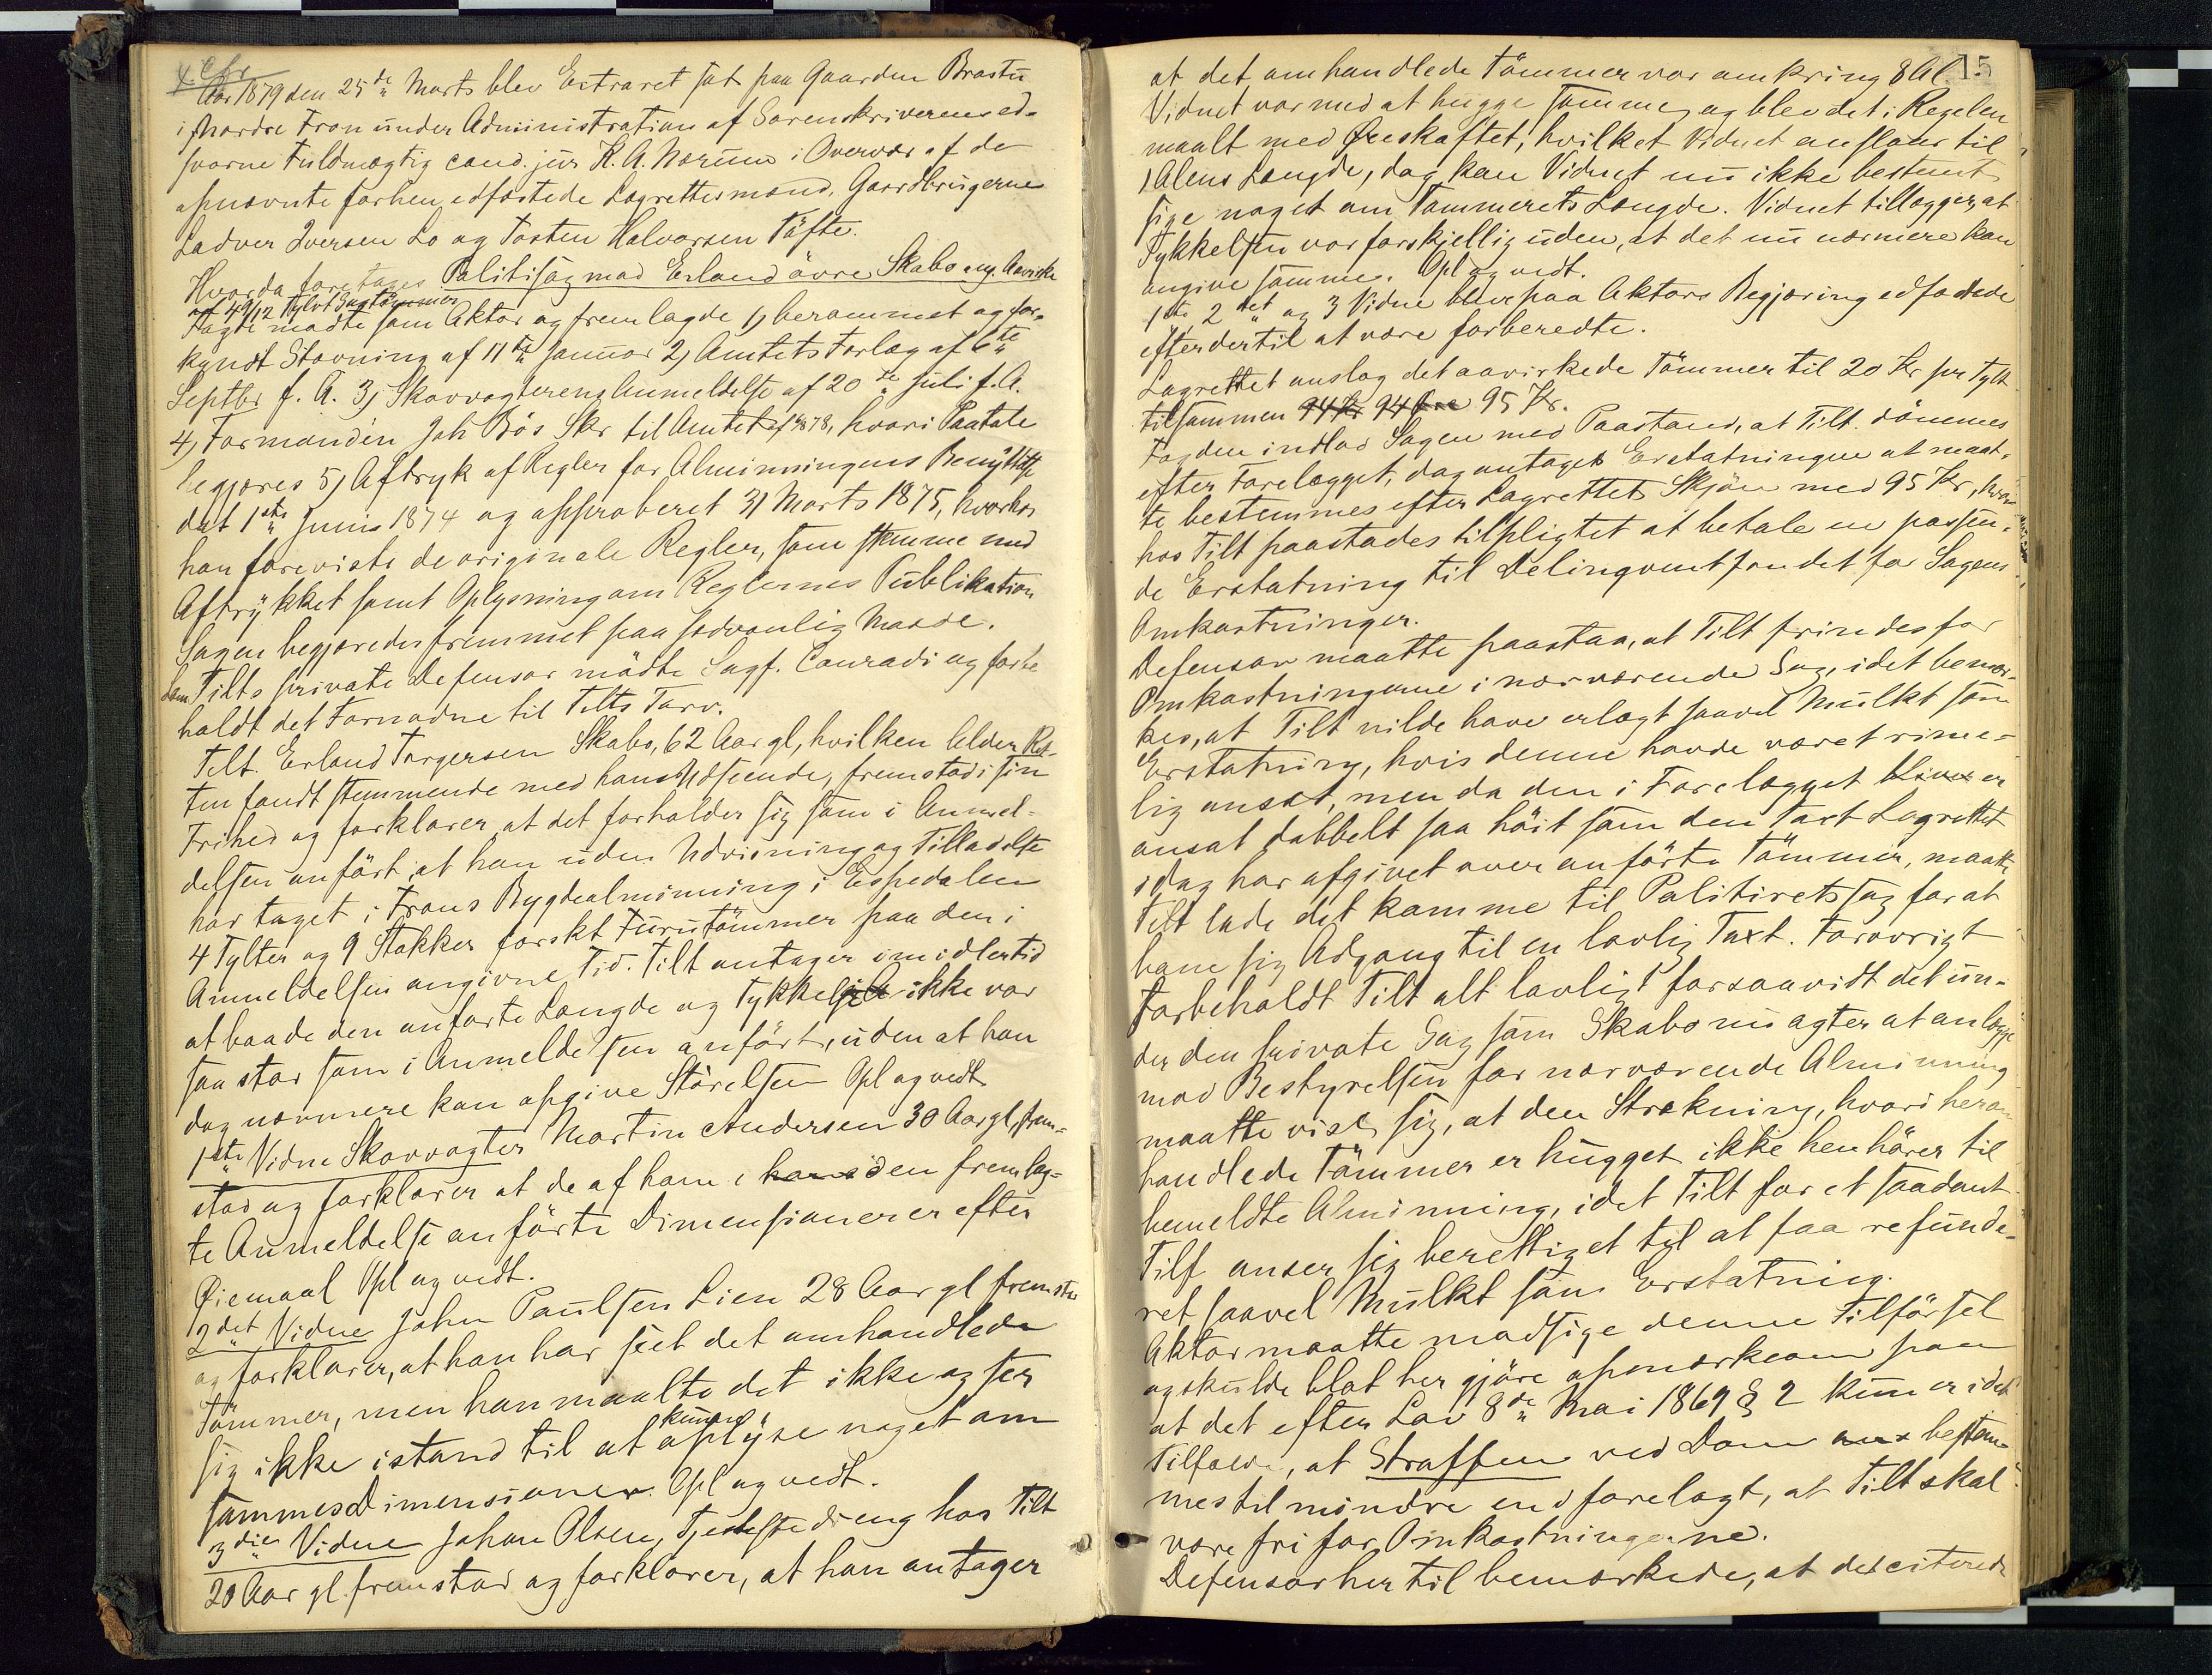 Aar 1879 den 25de Marts blev Extraret sat paa Gaarden Brastu
i Nordre Fron under Administration af Sorenskriverens ed-
svorne Fuldmægtig cand. jur K. A. Nærum i Overvær af de
opnævnte forhen edfæstede Lagrettesmænd, Gaardbrugerne
Ladver Iversen Lo og Tosten Halvorsen Töfte.
Hvorda foretages Politisag mod Erland övre Skabo ang. Aavirke
af 4 9/12 Tylvt Sagtömmer
Fogde mødte som Aktor og fremlagde 1, berammet og for-
kyndt Stævning af 11te Januar 2, Amtets Forlæg af 6te
Septbr f. A. 3, Skovvogterens Anmeldelse af 20de Juli f. A.
4, Formanden Joh Bös Skr til Amtet af 1878, hvori Paatale
begjæres 5, Aftryk af Regler for Alminningens Benyttelse
dat 1ste Juni 1874 og approberet 31 Marts 1875, hvorhos
han foreviste de originale Regler, som stemme med
Aftrykket samt Oplysning om Reglernes Publikation
Sagen begjæredes fremmet paa sædvanlig Maade.
Som Tilts private Defensor mödte Sagf. Conradi og forbe
holdt det Fornødne til Tilts Tarv.
Tilt. Erland Torgersen Skabo, 62 Aar gl, hvilken Alder Ret-
ten fandt stemmende med hans Udseende, fremstod i sin
Frihed og forklarer at det forholder sig som i Anmel-
delsen anfört, at han uden Udvisning og Tilladelse
har taget i Frons Bygdealminning i Espedalen
4 Tylter og 9 Stokker forskt Furutömmer paa den i
Anmeldelsen angivne Tid. Tilt antager imidlertid
at baade den anførte Længde og Tykkelse ikke var
saa stor som i Anmeldelsen anfört, uden at han
dog nærmere kan opgive Störelsen Opl og vedt
1ste Vidne Skovvogter Martin Andersen 30 Aar gl, frem-
stod og forklarer at de af ham i hans den fremlag-
te Anmeldelse anförte Dimensioner er efter
Øiemaal Opl og vedt.
2det Vidne John Paulsen Lien 28 Aar gl fremstod
og forklarer, at han har seet det omhandlede
Tömmer, men han maalte det ikke og ser
sig ikke istand til at kunne oplyse noget om
sammes Dimensioner. Opl og vedt.
3die Vidne Johan Olsen, Tjenestedreng hos Tilt
20 Aar gl. fremstod og forklarer, at han antager
15
at det omhandlede Tömmer var omkring 8 Al
Vidnet var med at hugge samme, og blev det i Regelen
maalt med Øxeskaftet, hvilket Vidnet anslaar til
1 Alens Længde, dog kan Vidnet nu ikke bestemt
sige noget om Tømmerets Længde. Vidnet tillægger, at
Tykkelsen var forskjellig uden, at det nu nærmere kan
angive samme. Opl og vedt.
1ste 2det og 3 Vidne blev paa Aktors Begjæring edfæstede
efter dertil at være forberedte.
Lagrettet anslog det aavirkede Tömmer til 20 Kr pr Tylt
tilsammen 94 Kr 94 Øre 95 Kr.
Fogden indlod Sagen med Paastand, at Tilt. dömmes
efter Forelægget, dog antages Erstatningen at maat-
te bestemmes efter Lagrettets Skjön med 95 Kr, hvor-
hos Tilt paastades tilpligtet at betale en passen-
de Erstatning til Delinqventfondet for Sagens
Omkostninger.
Defensor maatte paastaa, at Tilt frindes for
Omkostningerne i nærværende Sag, idet bemær-
kes, at Tilt vilde have erlagt saavel Mulkt som
Erstatning, hvis denne havde været rime-
lig ansat, men da den i Forelægget bliver er
ansat dobbelt saa höit som den Taxt Lagrettet
idag har afgivet over anförte Tömmer, maatte
Tilt lade det komme til Politiretssag for at
bane sig Adgang til en lovlig Taxt. Forøvrigt
forbeholdt Tilt alt lovligt forsaavidt det un-
der den private Sag som Skabo nu agter at anlægge
mod Bestyrelsen for nærværende Alminning
maatte vise sig, at den Strækning, hvori herom-
handlede Tömmer er hugget ikke henhörer til
bemeldte Alminning, idet Tilt for et saadant
Tilf anser sig berettiget til at faa refunde-
ret saavel Mulkt som Erstatning.
Aktor maatte modsige denne Tilförsel
og skulde blot her gjöre opmærksom paa
at det efter Lov 8de Mai 1869 § 2 kun er i det
Tilfælde, at Straffen ved Dom bestem-
mes til mindre end forelagt, at Tilt skal
være fri for Omkostningerne.
Defensor her til bemærkede, at det citerede